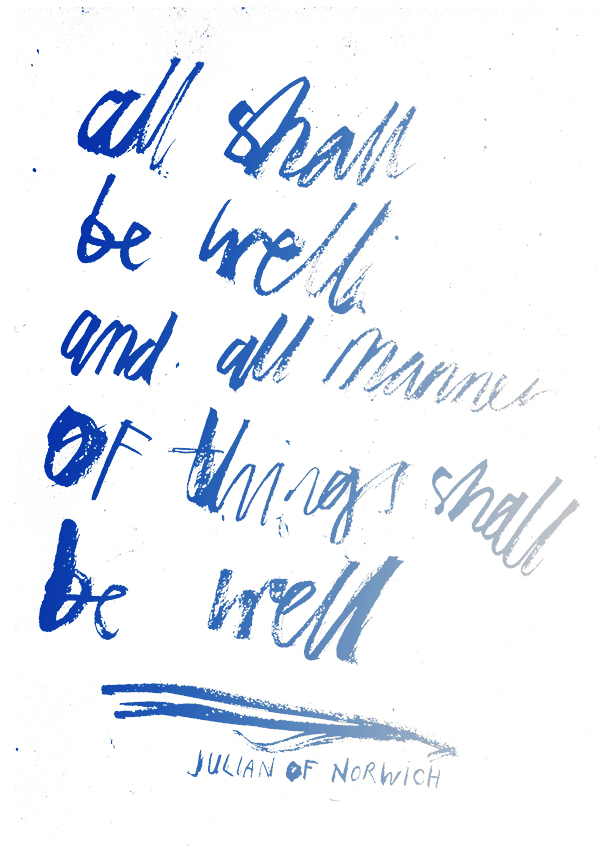 all shall
be well
and all manner
of things shall
be well
JULIAN OF NORWICH